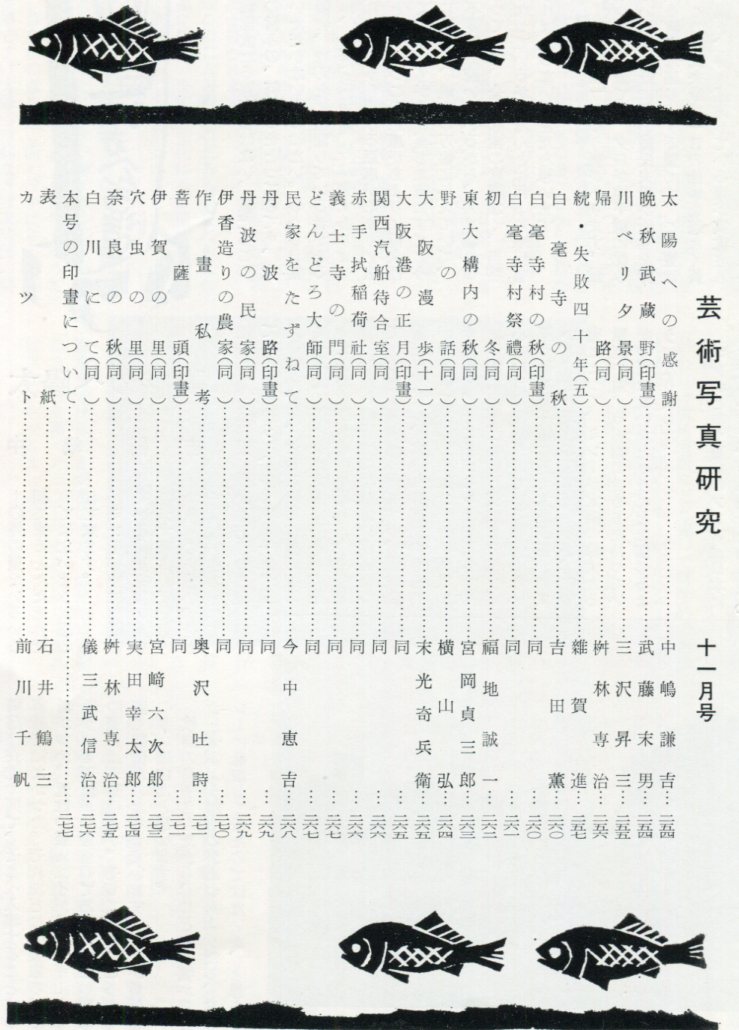 芸術写真研究 十一月号
太陽への感謝……中嶋謙吉…二五四
晩秋武蔵野(印畫)……武藤末男…二五四
川べり夕景(同)……三沢昇三…二五五
帰路(同)……桝林専治…二五六
続・失敗四十年(五)……雑賀進…二五七
白毫寺の秋……吉田薫…二六〇
白毫寺村の秋(印畫)……同…二六〇
白毫寺村祭禮(同)……同…二六一
初冬(同)……福地誠一…二六二
東大構内の秋(同)……宮岡貞三郎…二六三
野の話(同)……横山弘…二六四
大阪漫歩(十一)……末光奇兵衛…二六五
大阪港の正月(印畫)……同…二六五
関西汽船待合室(同)……同…二六六
赤手拭稲荷社(同)……同…二六六
義士寺の門(同)……同…二六七
どんどろ大師(同)……同…二六七
民家をたずねて……今中恵吉…二六八
丹波路(印畫)……同…二六九
丹波の民家(同)……同…二六九
伊香造りの農家(同)……同…二七〇
作畫私考……奥沢吐詩…二七一
菩薩頭(印畫)……同…二七一
伊賀の里(同)……宮﨑六次郎…二七三
穴虫の里(同)……実田幸太郎…二七四
奈良の秋(同)……桝林専治…二七五
白川にて(同)……儀三武信治…二七六
本号の印畫について……二七七
表紙……石井鶴三
カツト……前川千帆